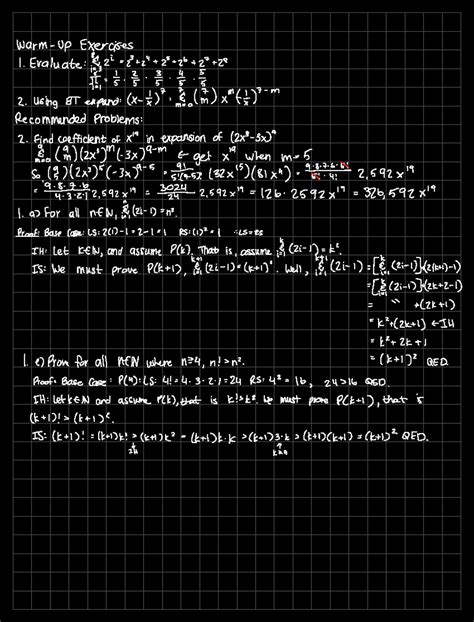 Warm-Up Exercises
1. Evaluate: Σ 2^i = 2^3 + 2^4 + 2^5 + 2^6 + 2^7 + 2^8
= 1/5 · 2/5 · 3/5 · 4/5 · 5/5
2. Using BT expand: (x - 1/x)^7 = Σ_{m=0}^{7} (7 m) x^m (-1/x)^{7-m}
Recommended Problems:
2. Find coefficient of x^19 in expansion of (2x^3 - 3x)^9
Σ_{m=0}^{9} (9 m) (2x^3)^m (-3x)^{9-m} ← get x^19 when m = 5
So (9 5) (2x^3)^5 (-3x)^{9-5} = 9!/5!(9-5)! (32x^15)(81x^4) = 9·8·7·6·5!/5!·4! 2,592x^19
= 9·8·7·6/4·3·2·1 2,592x^19 = 3024/24 2,592x^19 = 126 · 2592x^19 = 326,592x^19
1. a) For all n∈N, Σ_{i=1}^{n} (2i-1) = n².
Proof: Base Case: LS: 2(1)-1 = 2-1 = 1 RS: (1)² = 1 ∴LS=RS
IH: Let k∈N, and assume P(k). That is, assume Σ_{i=1}^{k} (2i-1) = k².
IS: We must prove P(k+1), Σ_{i=1}^{k+1} (2i-1) = (k+1)². Well, Σ_{i=1}^{k+1} (2i-1) = [Σ_{i=1}^{k} (2i-1)] + (2(k+1)-1)
= [Σ_{i=1}^{k} (2i-1)] + (2k+2-1)
= " + (2k+1)
= k² + (2k+1) ← IH
= k² + 2k + 1
= (k+1)² QED.
1. e) Prove for all n∈N where n≥4, n! > n².
Proof: Base Case: P(4): LS: 4! = 4·3·2·1 = 24 RS: 4² = 16, 24 > 16 QED.
IH: Let k∈N and assume P(k), that is k! > k². We must prove P(k+1), that is
(k+1)! > (k+1)².
IS: (k+1)! = (k+1)k! > (k+1)k² = (k+1)k·k > (k+1)3·k > (k+1)(k+1) = (k+1)² QED.
IH k≥4